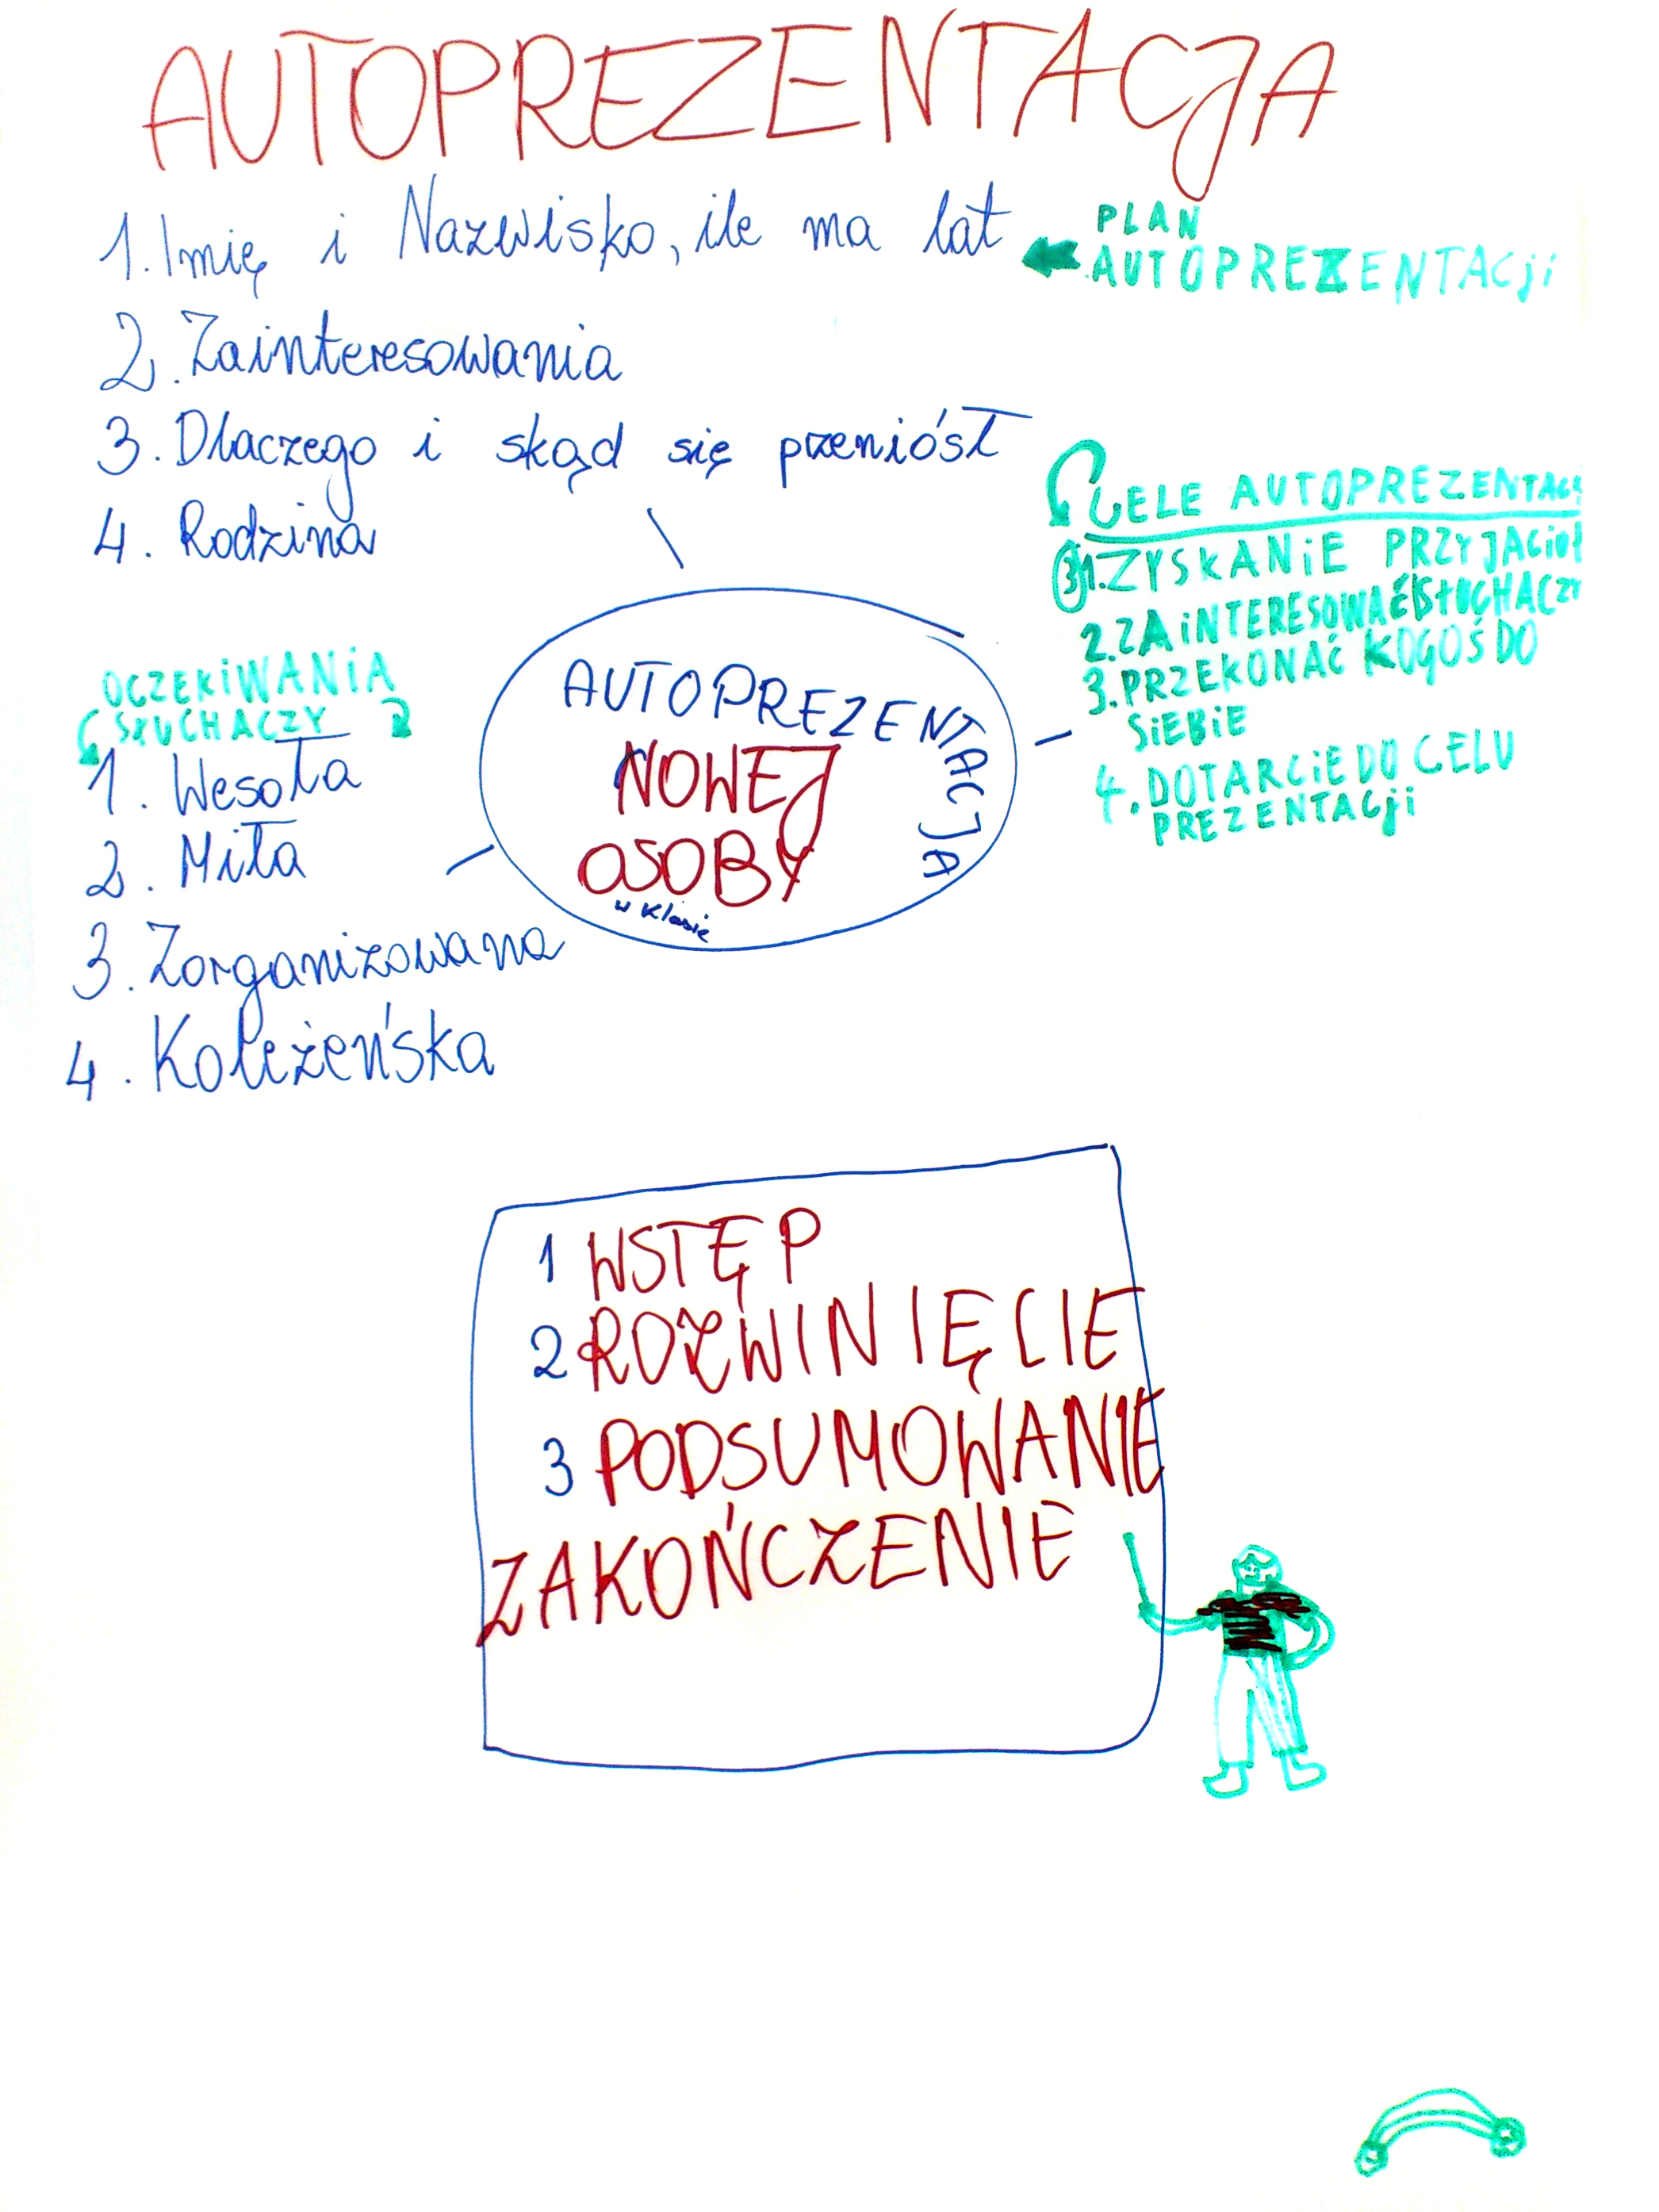 AUTOPREZENTACJA
1. Imię i Nazwisko, ile ma lat
PLAN
AUTOPREZENTACji
2. Zainteresowania
3. Dlaczego i skąd się przeniósł
4. Rodzina
CELE AUTOPREZENTACJ
1. ZYSKANiE PRZYJACiół
2. ZAiNTERESOWAĆ SŁUCHACZY
3. PRZEKONAĆ KOGOŚ DO
SiEBiE
4. DOTARCiE DO CELU
PREZENTACji
OCZEKiWANiA
SŁUCHACZY
1. Wesoła
2. Miła
3. Zorganizowana
4. Koleżeńska
AUTOPREZENTACJA
NOWEJ
OSOBY
w klasie
1 WSTĘP
2 ROZWINIĘCIE
3 PODSUMOWANIE
ZAKOŃCZENIE